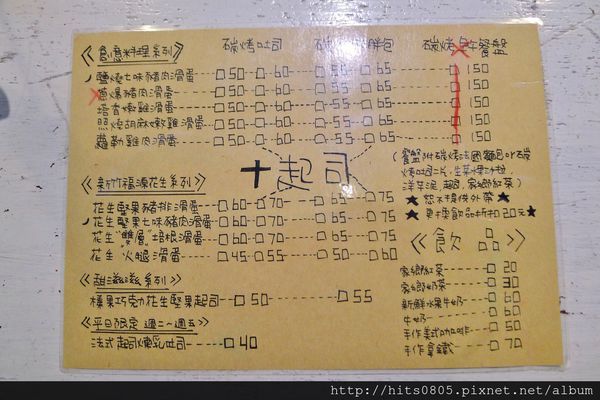 碳烤吐司 碳烤 胖包 碳烤早午餐盤
《創意料理系列》
鹽燒七味豬肉滑蛋 50 60 55 65 150
蔥爆豬肉滑蛋 50 60 55 65 150
培香嫩雞滑蛋 50 60 55 65 150
照燒胡麻嫩雞滑蛋 50 60 55 65 150
羅勒雞肉滑蛋 50 60 55 65 150
+起司
(餐盤附碳烤法國麵包or碳
烤吐司2片、生菜水果沙拉、
洋芋泥、起司、家鄉紅茶)
★恕不提供外帶★
★單精飲品折扣20元★
《新竹福源花生系列》
花生堅果豬排滑蛋 60 70 65 75
花生堅果七味豬肉滑蛋 60 70 65 75
花生"雙層"培根滑蛋 60 70 65 75
花生火腿滑蛋 45 55 50 60
《飲品》
家鄉紅茶 20
家鄉奶茶 30
新鮮水果牛奶 60
牛奶 60
手作美式咖啡 50
手作拿鐵 70
《甜滋滋系列》
榛果巧克力花生堅果起司 50 55
《平日限定 週二~週五》
法式起司煉乳吐司 40
http://hits0805.pixnet.net/album